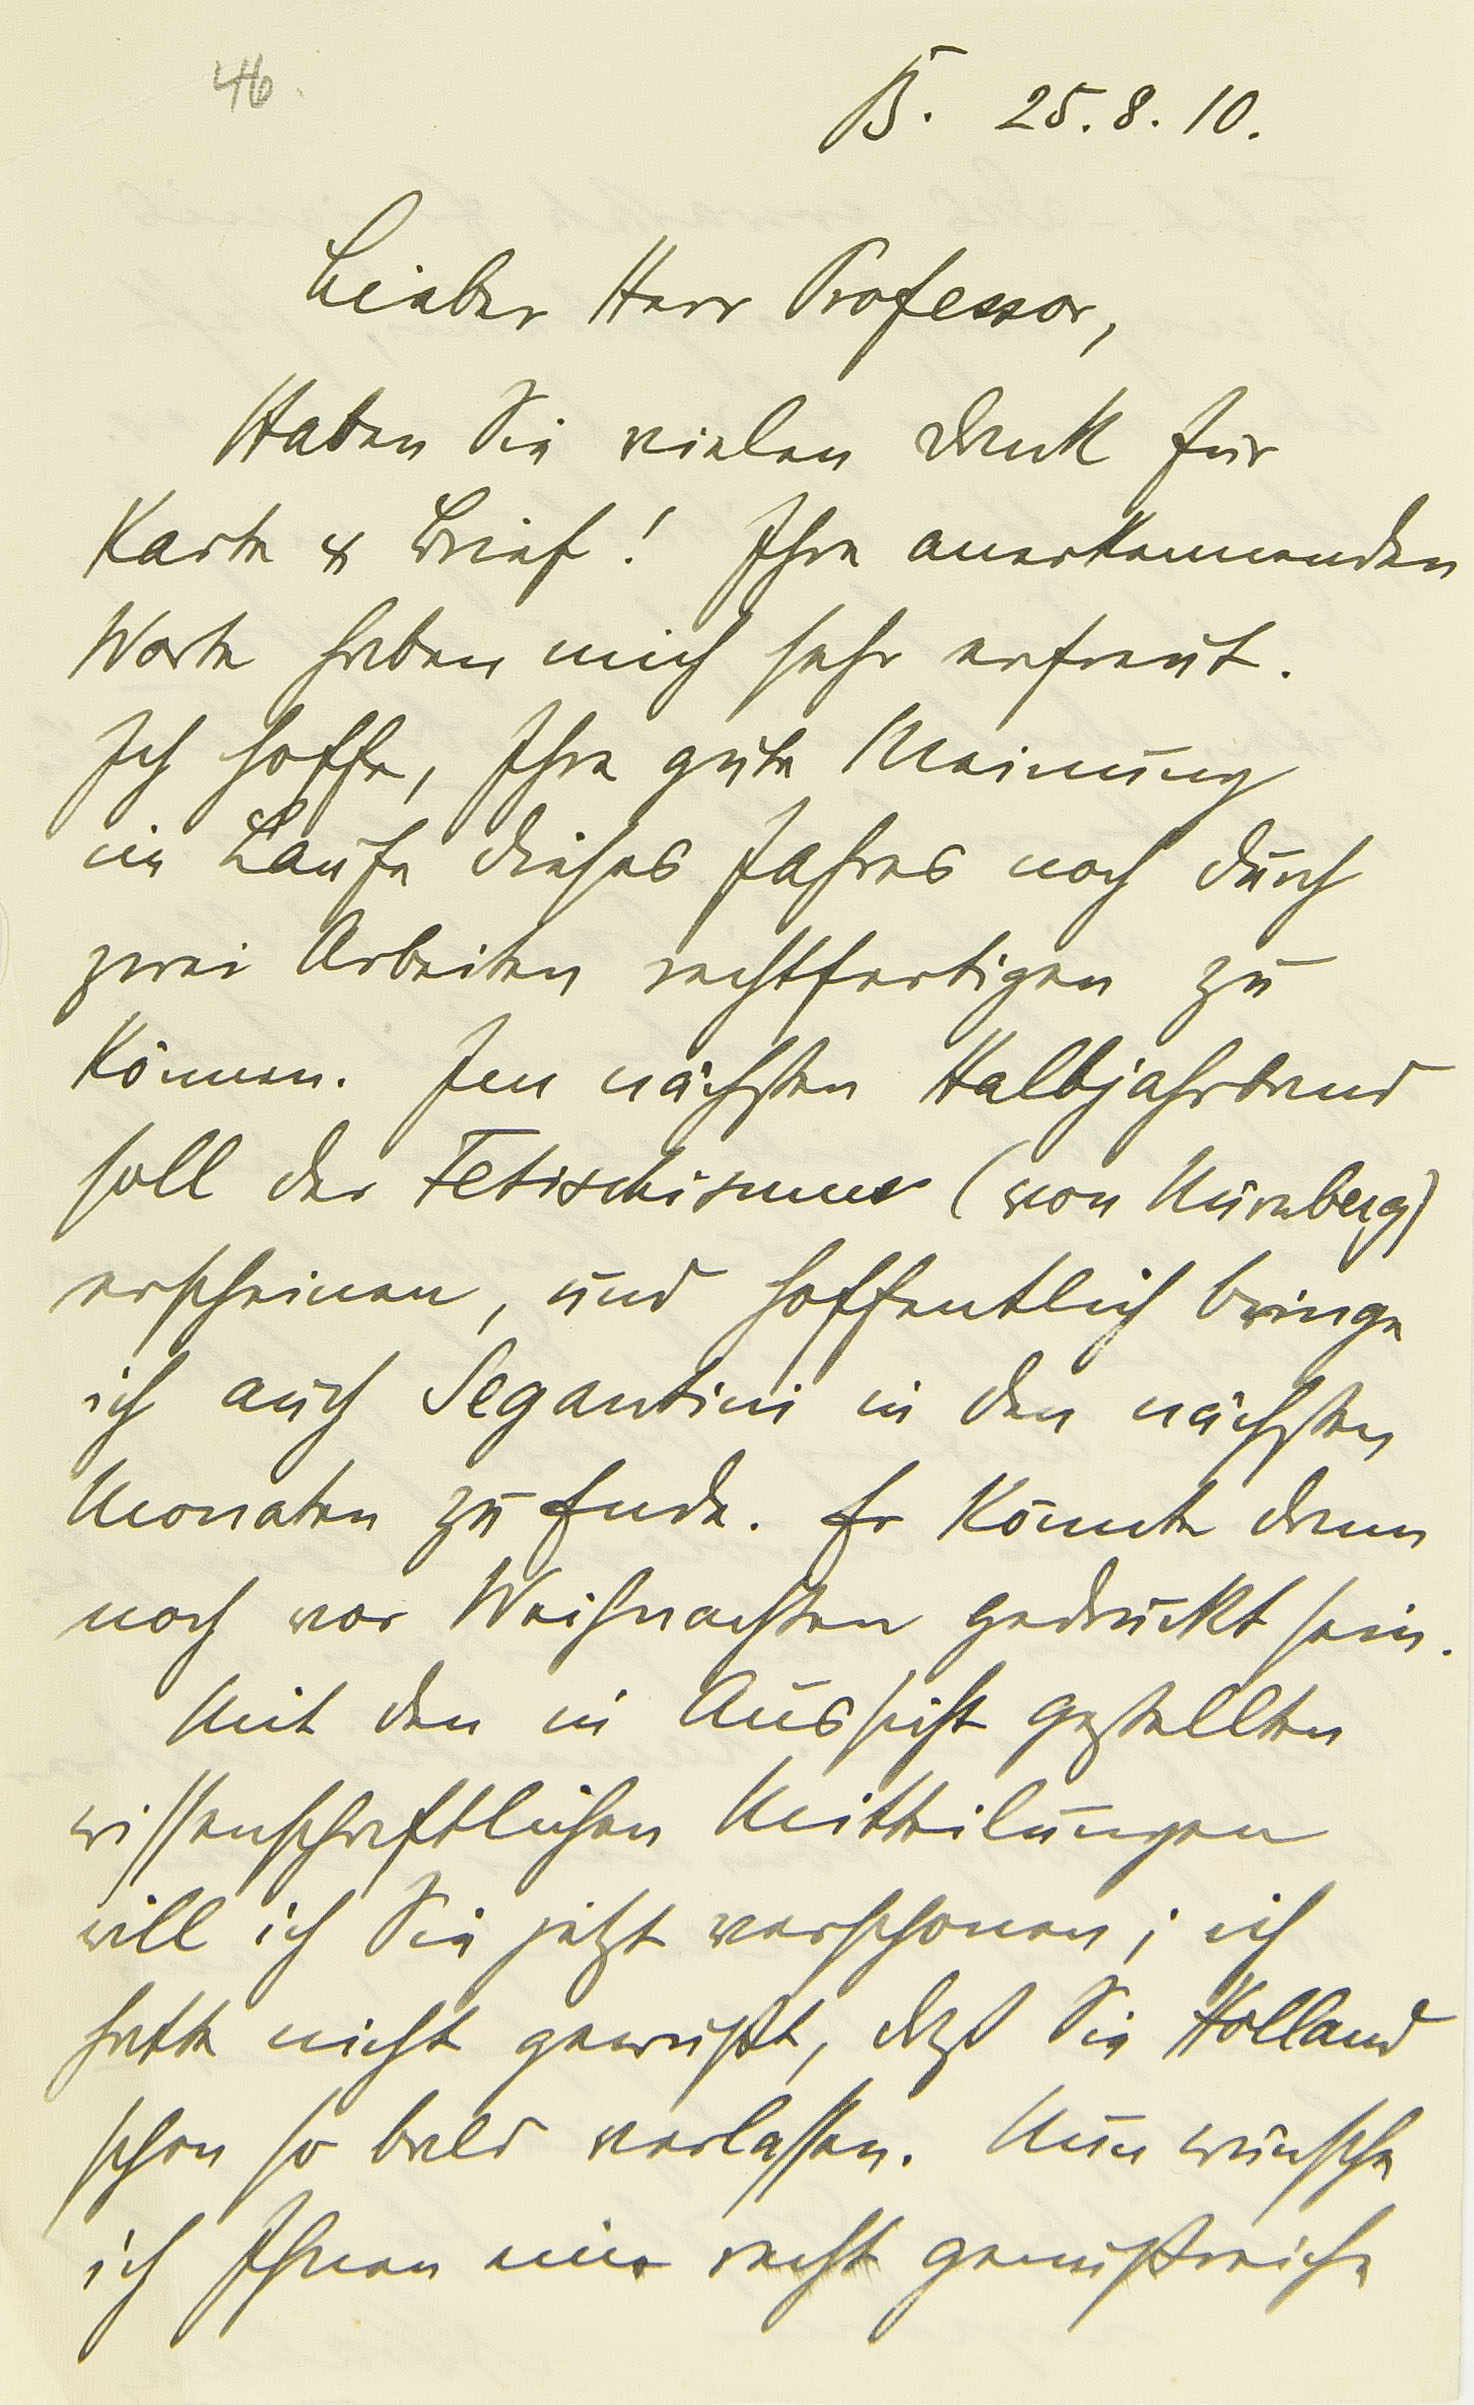 46
B. 25.8.10.
Lieber Herr Professor,
Haben Sie vielen Dank für
Karte & Brief! Ihre anerkennenden
Worte haben mich sehr erfreut.
Ich hoffe, Ihre gute Meinung
im Laufe dieses Jahres noch durch
zwei Arbeiten rechtfertigen zu
können. Im nächsten Halbjahrband
soll der Fetischismus (von Nürnberg)
erscheinen, und hoffentlich bringe
ich auch Segantini in den nächsten
Monaten zu Ende. Er könnte dann
noch vor Weihnachten gedruckt sein.
Mit den in Aussicht gestellten
wissenschaftlichen Mitteilungen
will ich Sie jetzt verschonen; ich
hatte nicht gewußt, daß Sie Holland
schon so bald verlassen. Nun wünsche
ich Ihnen eine recht genußreiche